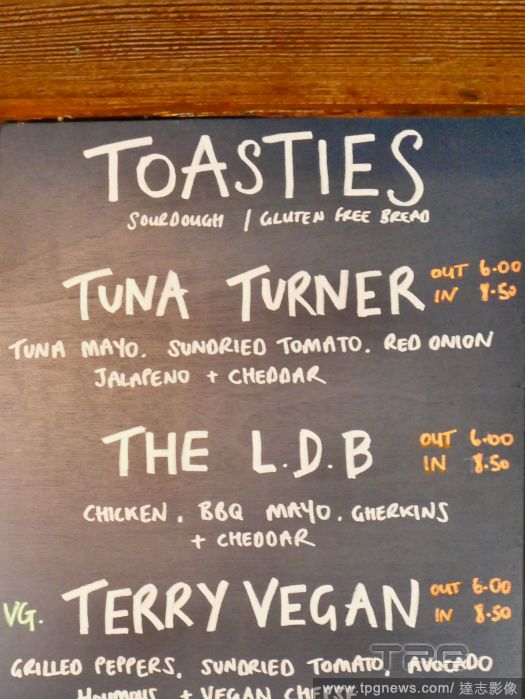 TOASTIES
SOURDOUGH / GLUTEN FREE BREAD
TUNA TURNER OUT 6.00
IN 8.50
TUNA MAYO. SUNDRIED TOMATO. RED ONION
JALAPENO + CHEDDAR
THE L.D.B OUT 6.00
IN 8.50
CHICKEN. BBQ MAYO. GHERKINS
+ CHEDDAR
VG. TERRY VEGAN OUT 6.00
IN 8.50
GRILLED PEPPERS. SUNDRIED TOMATO. AVOCADO
HOUMOUS + VEGAN CHEESE
TPG
www.tpgnews.com/ 達志影像